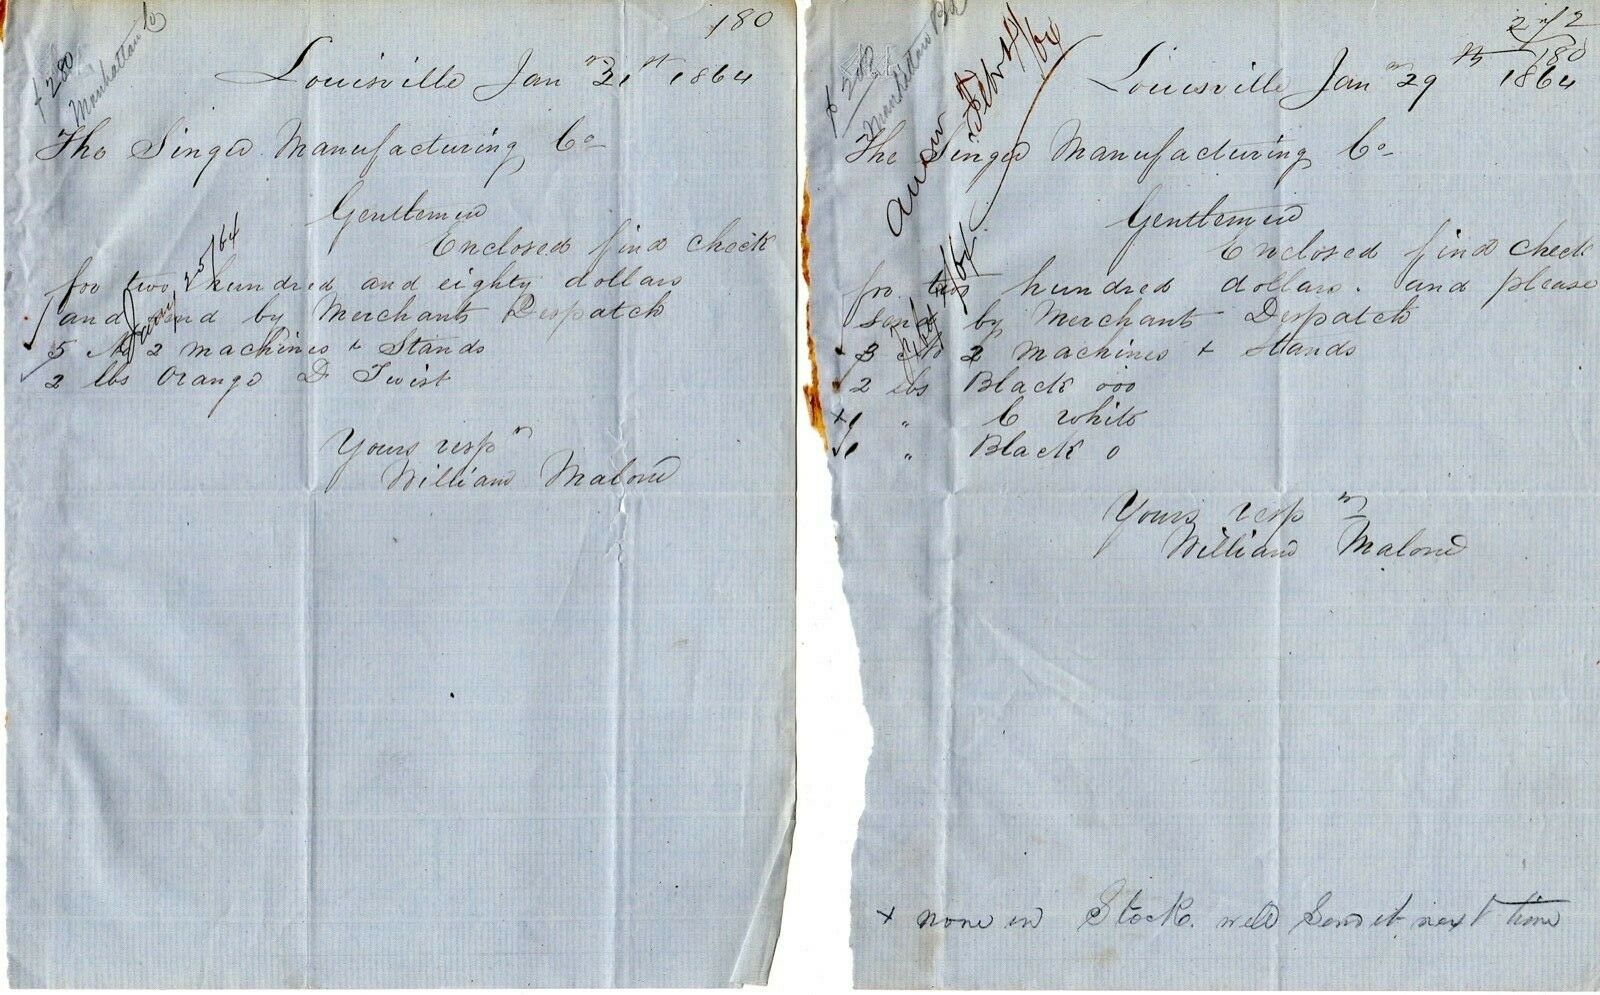 180
$280
Manhattan Co
Louisville Jan 21st 1864
The Singer Manufacturing Co
Gentlemen
Enclosed find check
for two hundred and eighty dollars
and send by Merchants Despatch
5 No 2 machines + Stands
2 lbs Orange D Twist
Yours resp
William Malone
25/64
2
180
$200
Manhattan
Answ Febr 4/64
Louisville Jan 29th 1864
The Singer Manufacturing Co
Gentlemen
Enclosed find check
for two hundred dollars. and please
send by Merchants Despatch
3 No 2 machines + stands
2 lbs Black ooo
x 1 " C white
1 " Black o
Yours resp
William Malone
x none in Stock. will Send it next time